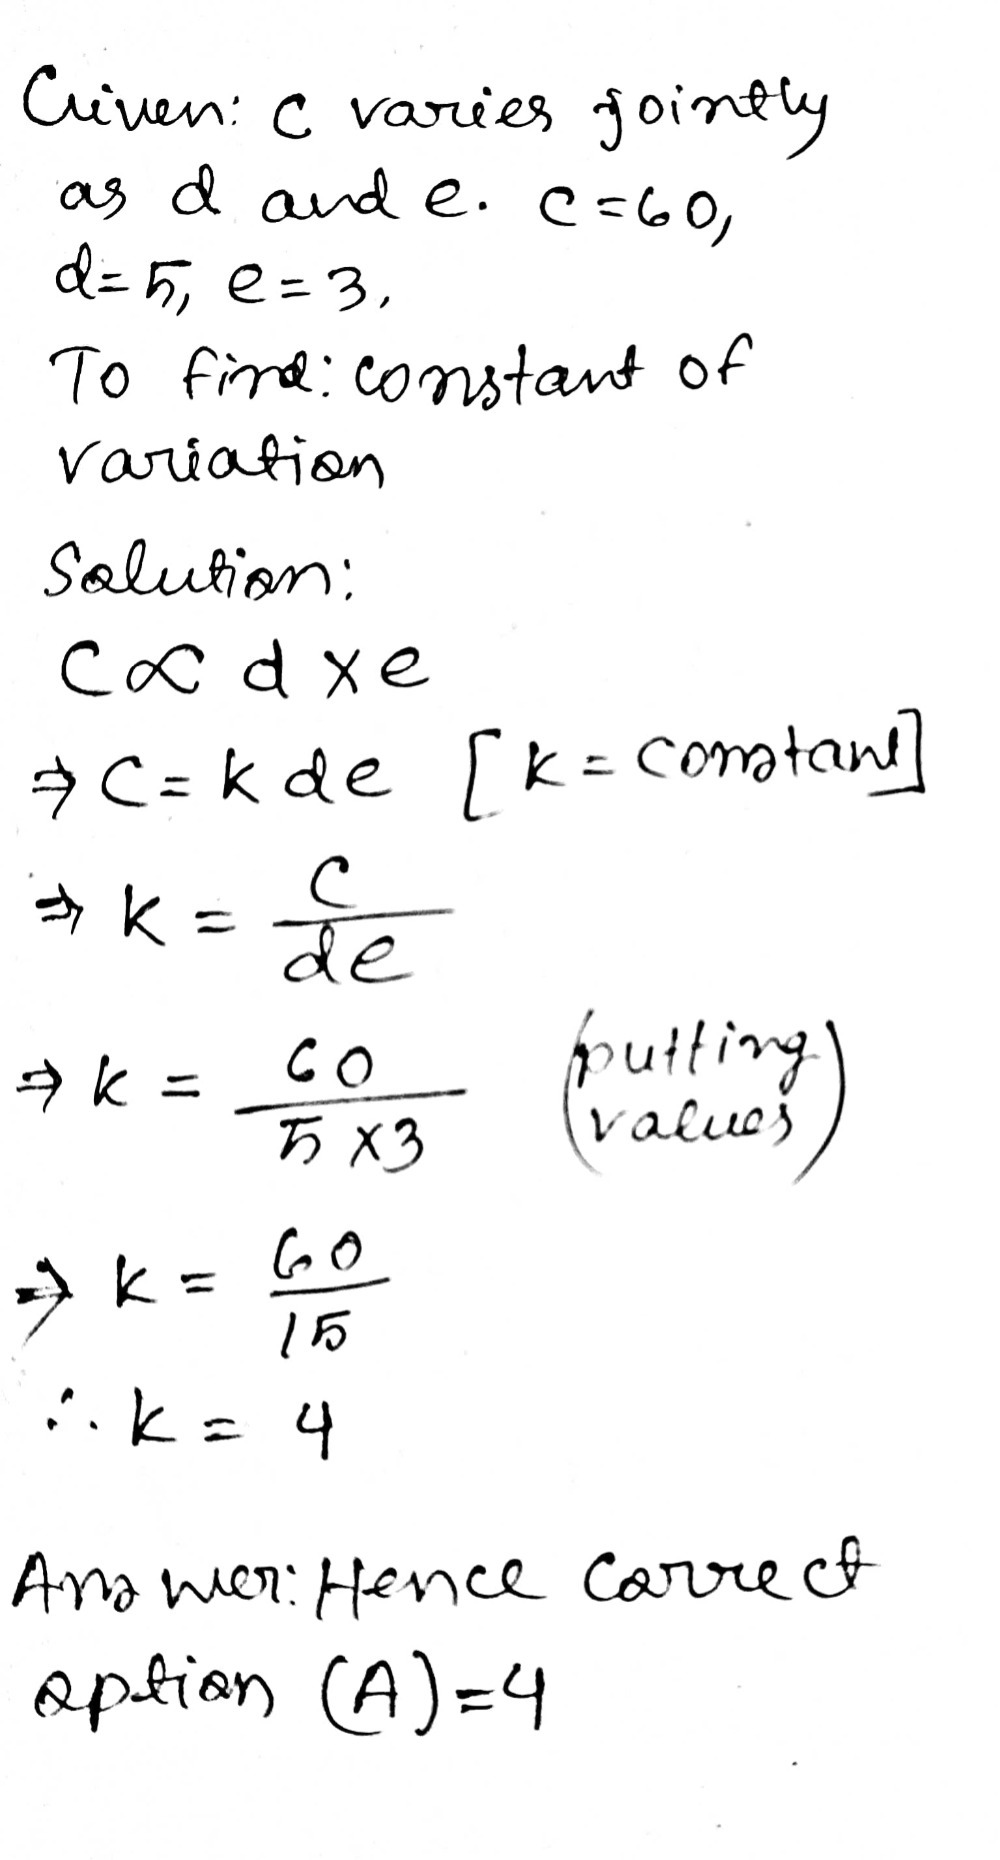 Given: C varies jointly
as d and e. C=60,
d=5, e=3,
To find: constant of
variation
Solution:
C∝ d×e
⇒ C=kde [k=constant]
⇒ k = C/de
⇒ k = 60/5×3 (putting values)
⇒ k = 60/15
∴ k = 4
Answer: Hence correct
option (A)=4